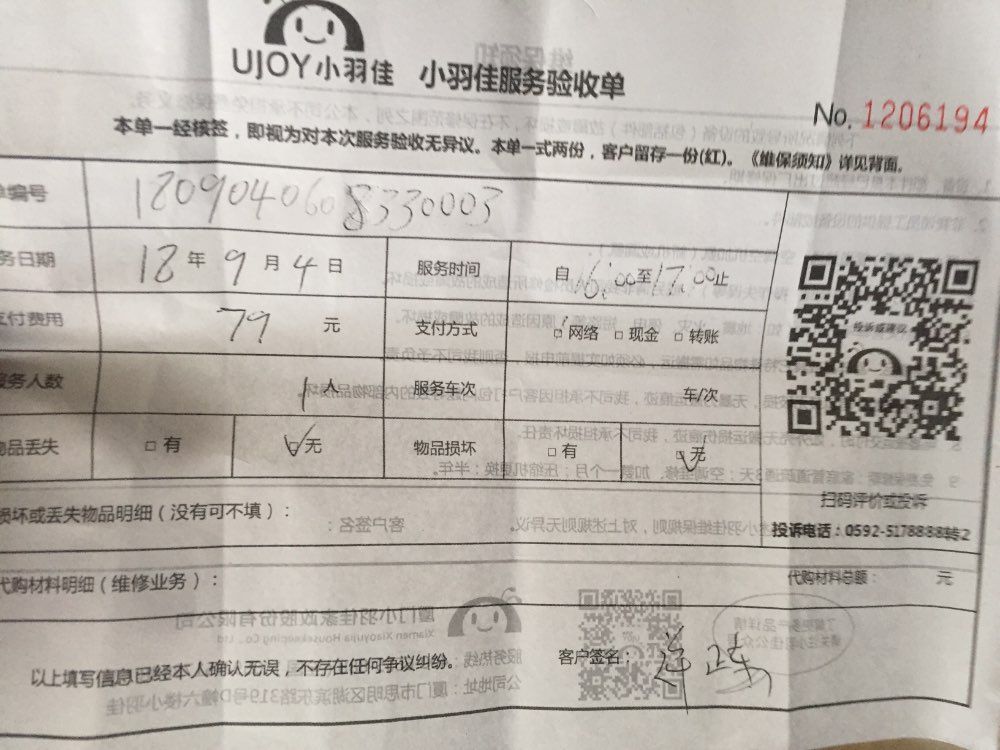 UJOY小羽佳 小羽佳服务验收单
No. 1206194
本单一经核签，即视为对本次服务验收无异议。本单一式两份，客户留存一份(红)。《维保须知》详见背面。
单编号 1809040608330003
务日期 18年9月4日 服务时间 自16:00至17:00止
支付费用 79元 支付方式 □网络 □现金 □转账
服务人数 1人 服务车次 车/次
物品丢失 □有 □无 物品损坏 □有 □无
投诉或建议
扫码评价或投诉
投诉电话：0592-5178888转2
损坏或丢失物品明细（没有可不填）：
代购材料明细（维修业务）： 代购材料总额： 元
以上填写信息已经本人确认无误，不存在任何争议纠纷。 客户签名：